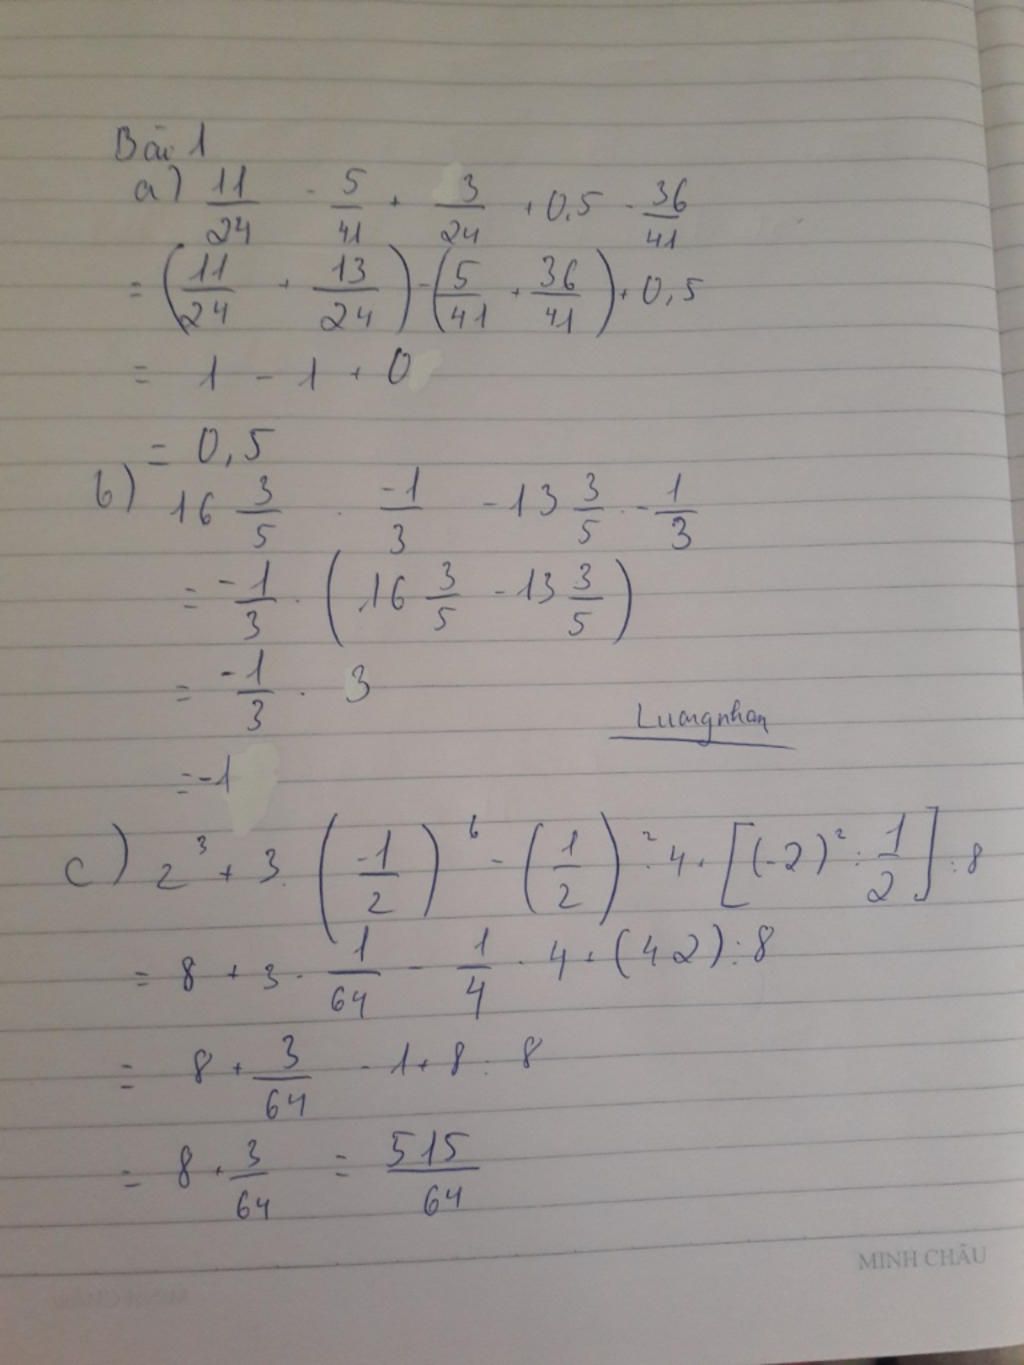 Bài 1
a) 11/24 - 5/41 + 3/24 + 0,5 - 36/41
= (11/24 + 13/24) - (5/41 + 36/41) + 0,5
= 1 - 1 + 0
= 0,5
b) 16 3/5 . -1/3 - 13 3/5 . -1/3
= -1/3 . (16 3/5 - 13 3/5)
= -1/3 . 3
Luongnhan
= -1
c) 2³ + 3. (-1/2)⁶ - (1/2)² . 4 + [(-2)² : 1/2] : 8
= 8 + 3 . 1/64 - 1/4 . 4 + (4 2) : 8
= 8 + 3/64 - 1 + 8 : 8
= 8 + 3/64 = 515/64
MINH CHÂU